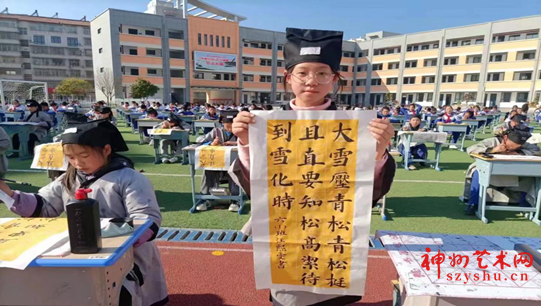 大雪壓青松青松挺
且直要知松高潔待
到雪化時
神州艺术网
szyshu.cn